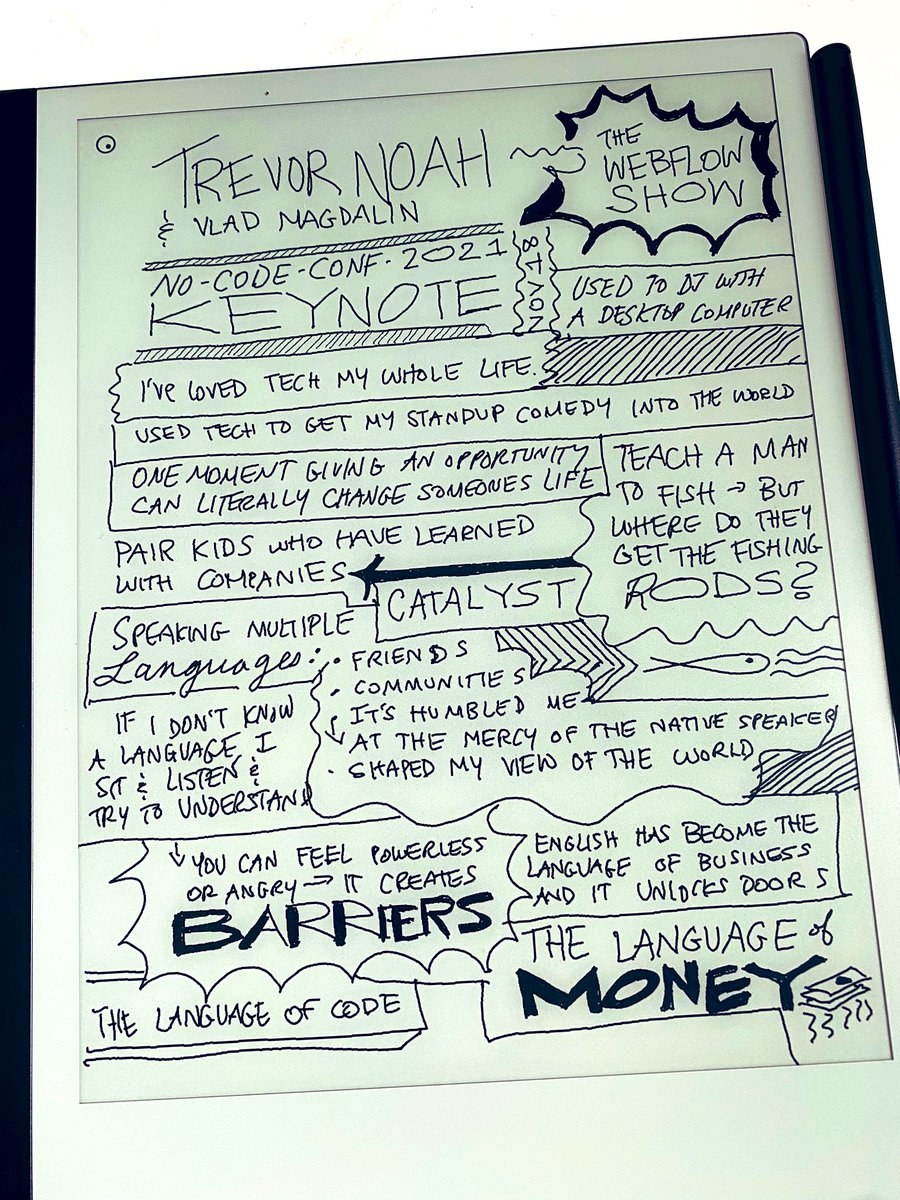 TREVOR NOAH
& VLAD MAGDALIN
THE
WEBFLOW
SHOW
NO-CODE-CONF-2021
KEYNOTE
NOV 18
USED TO DJ WITH
A DESKTOP COMPUTER
I'VE LOVED TECH MY WHOLE LIFE.
USED TECH TO GET MY STANDUP COMEDY INTO THE WORLD
ONE MOMENT GIVING AN OPPORTUNITY
CAN LITERALLY CHANGE SOMEONES LIFE
TEACH A MAN
TO FISH → BUT
WHERE DO THEY
GET THE FISHING
RODS?
PAIR KIDS WHO HAVE LEARNED
WITH COMPANIES
CATALYST
SPEAKING MULTIPLE
Languages:
· FRIENDS
· COMMUNITIES
↓ IT'S HUMBLED ME
AT THE MERCY OF THE NATIVE SPEAKER
· SHAPED MY VIEW OF THE WORLD
IF I DON'T KNOW
A LANGUAGE, I
SIT & LISTEN &
TRY TO UNDERSTAND
↓ YOU CAN FEEL POWERLESS
OR ANGRY → IT CREATES
BARRIERS
ENGLISH HAS BECOME THE
LANGUAGE OF BUSINESS
AND IT UNLOCKS DOORS
THE LANGUAGE of
MONEY
THE LANGUAGE OF CODE